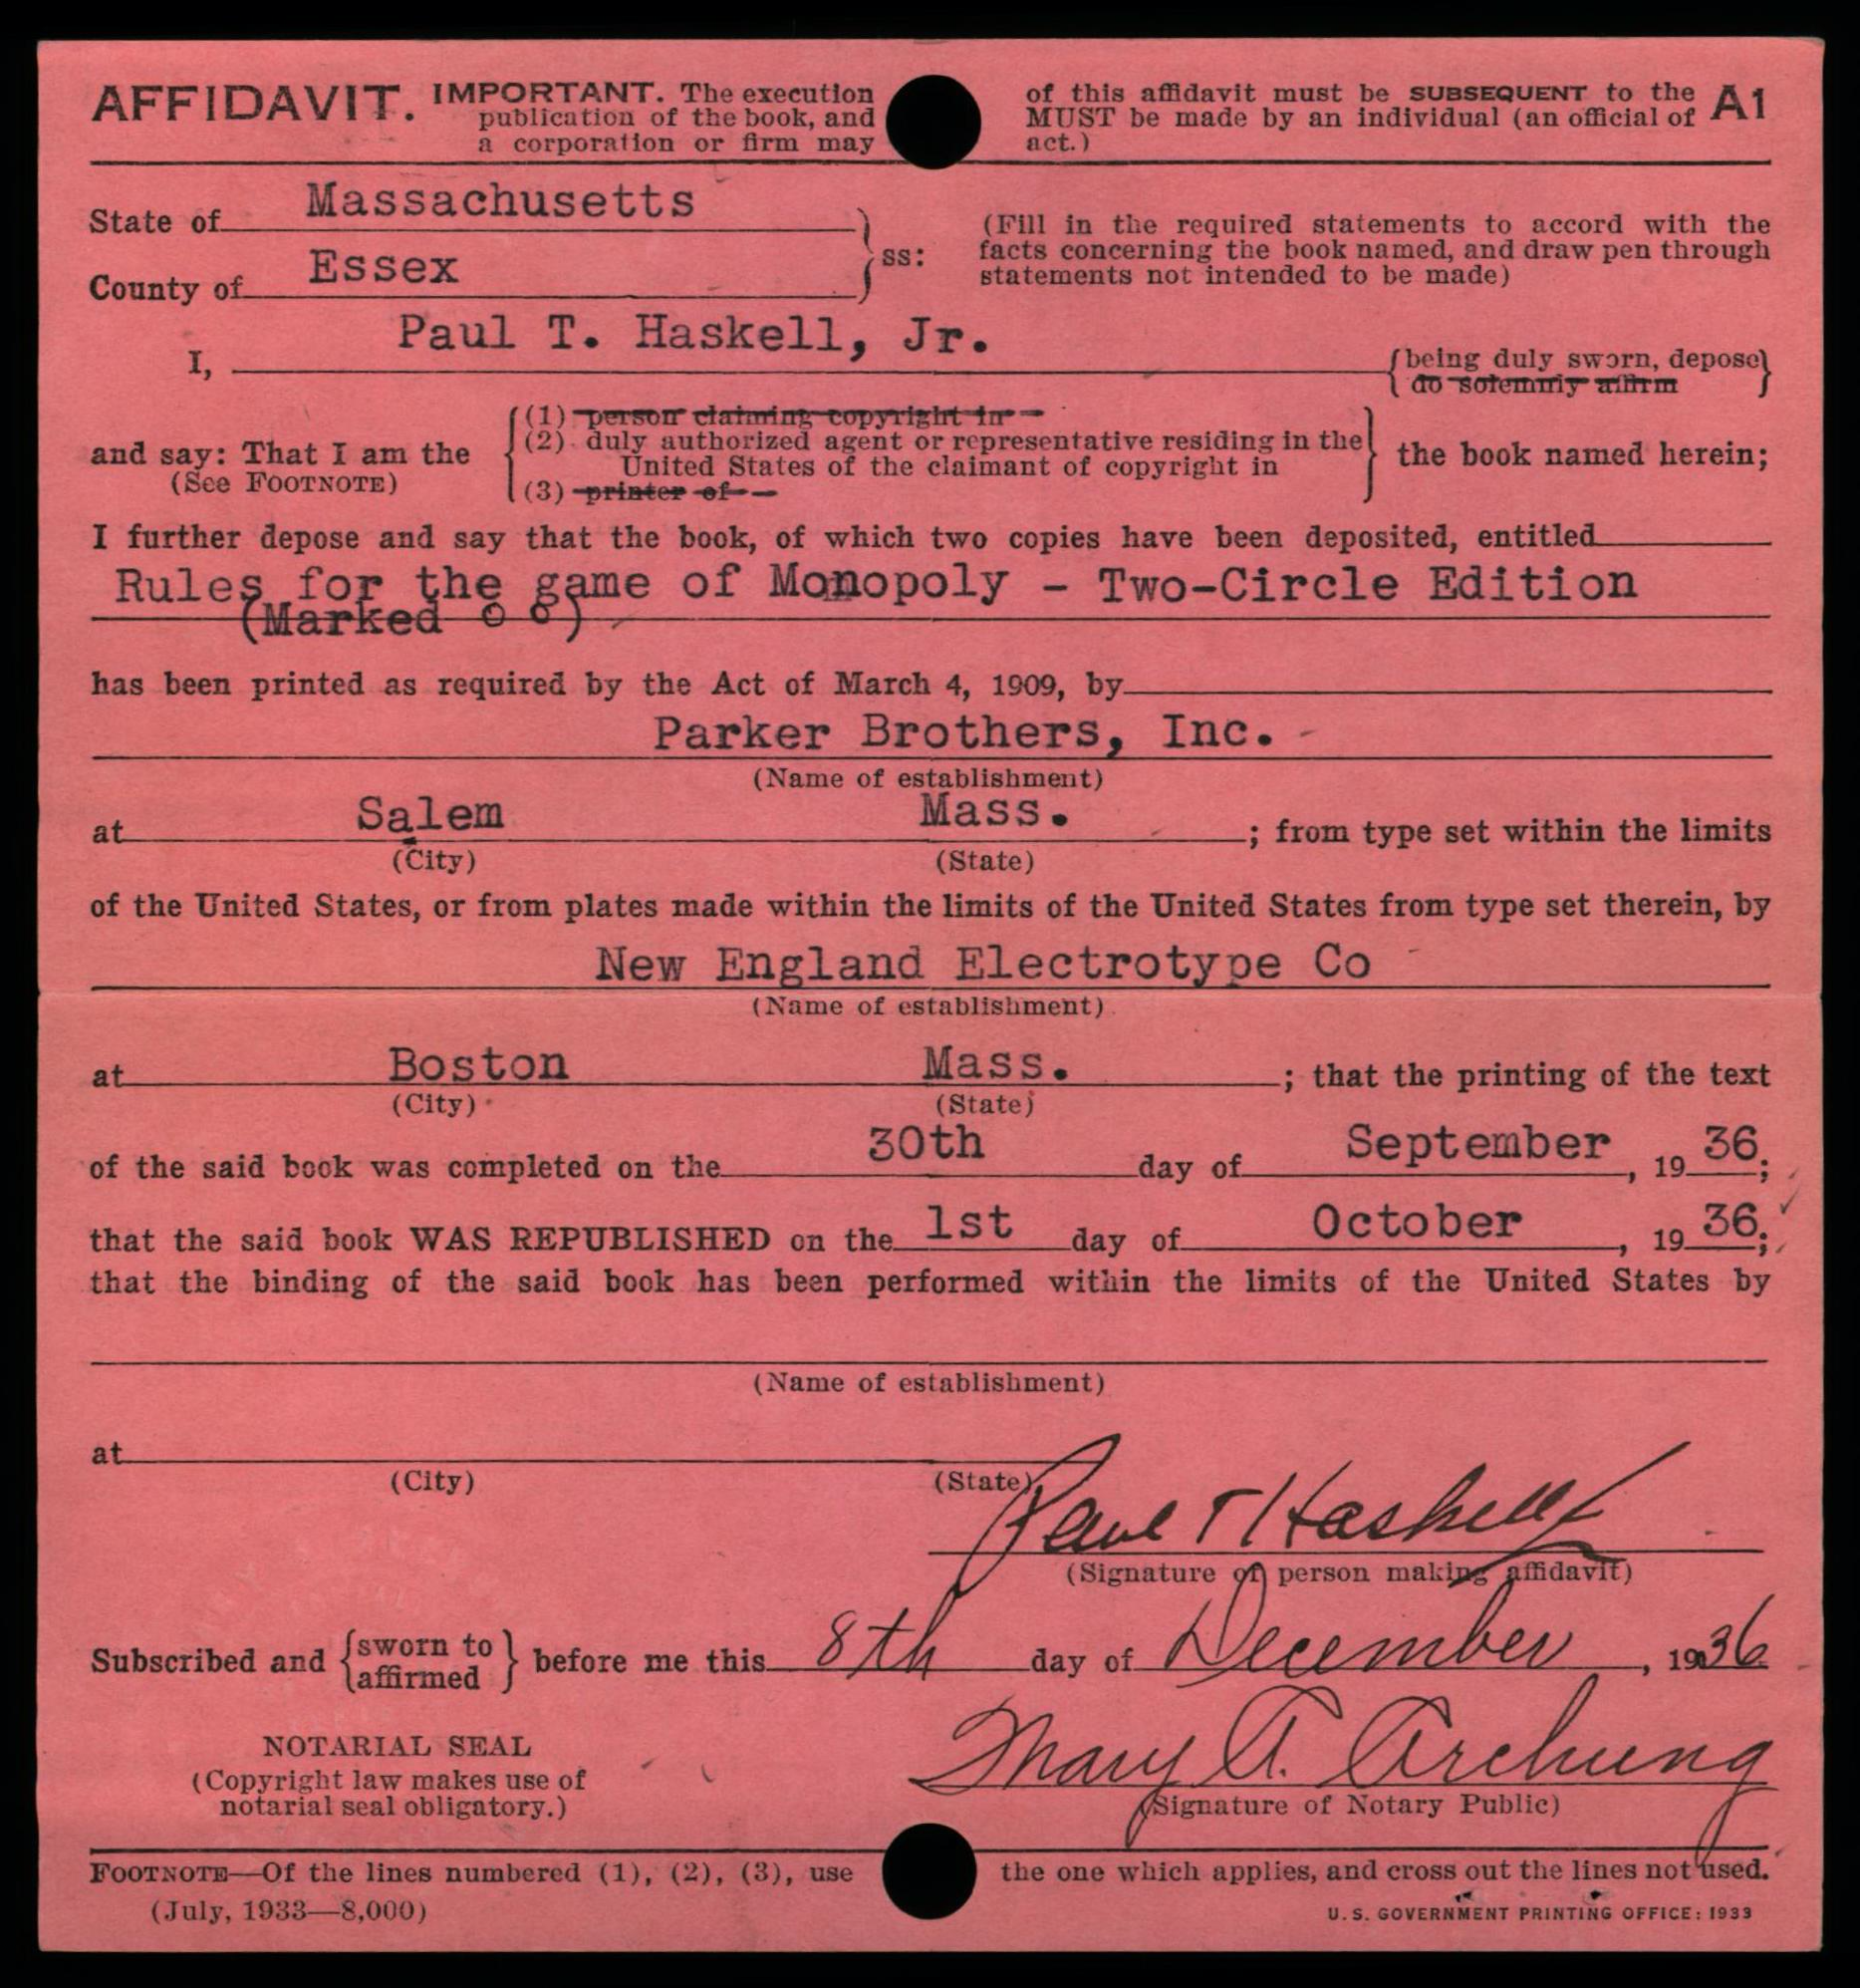 AFFIDAVIT. IMPORTANT. The execution of this affidavit must be SUBSEQUENT to the A1
publication of the book, and MUST be made by an individual (an official of
a corporation or firm may act.)
State of Massachusetts
(Fill in the required statements to accord with the
ss:
facts concerning the book named, and draw pen through
County of Essex
statements not intended to be made)
I, Paul T. Haskell, Jr.
being duly sworn, depose
do solemnly affirm
(1) person claiming copyright in
and say: That I am the (2) duly authorized agent or representative residing in the the book named herein;
(See FOOTNOTE) United States of the claimant of copyright in
(3) printer of
I further depose and say that the book, of which two copies have been deposited, entitled
Rules for the game of Monopoly - Two-Circle Edition
(Marked o o)
has been printed as required by the Act of March 4, 1909, by
Parker Brothers, Inc.
(Name of establishment)
at Salem Mass. ; from type set within the limits
(City) (State)
of the United States, or from plates made within the limits of the United States from type set therein, by
New England Electrotype Co
(Name of establishment)
at Boston Mass. ; that the printing of the text
(City) (State)
of the said book was completed on the 30th day of September, 1936;
that the said book WAS REPUBLISHED on the 1st day of October, 1936;
that the binding of the said book has been performed within the limits of the United States by
(Name of establishment)
at
(City) (State)
Paul T Haskell Jr
(Signature of person making affidavit)
Subscribed and sworn to before me this 8th day of December, 1936
affirmed
NOTARIAL SEAL
Mary A.
(Copyright law makes use of
notarial seal obligatory.)
(Signature of Notary Public)
FOOTNOTE—Of the lines numbered (1), (2), (3), use the one which applies, and cross out the lines not used.
(July, 1933—8,000)
U. S. GOVERNMENT PRINTING OFFICE: 1933